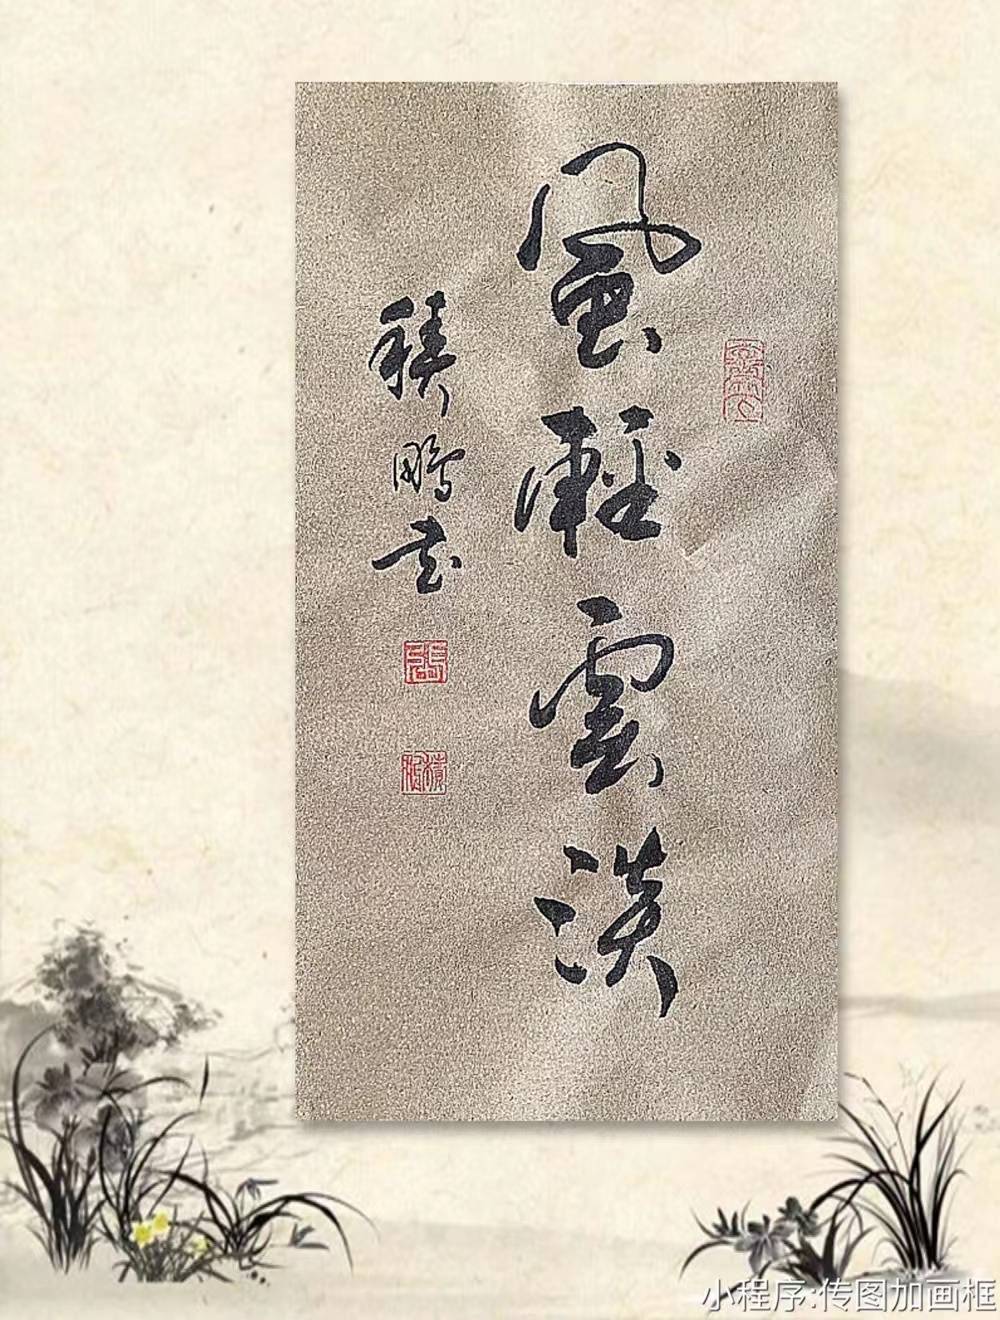 風輕雲淡
積鵬書
小程序:传图加画框